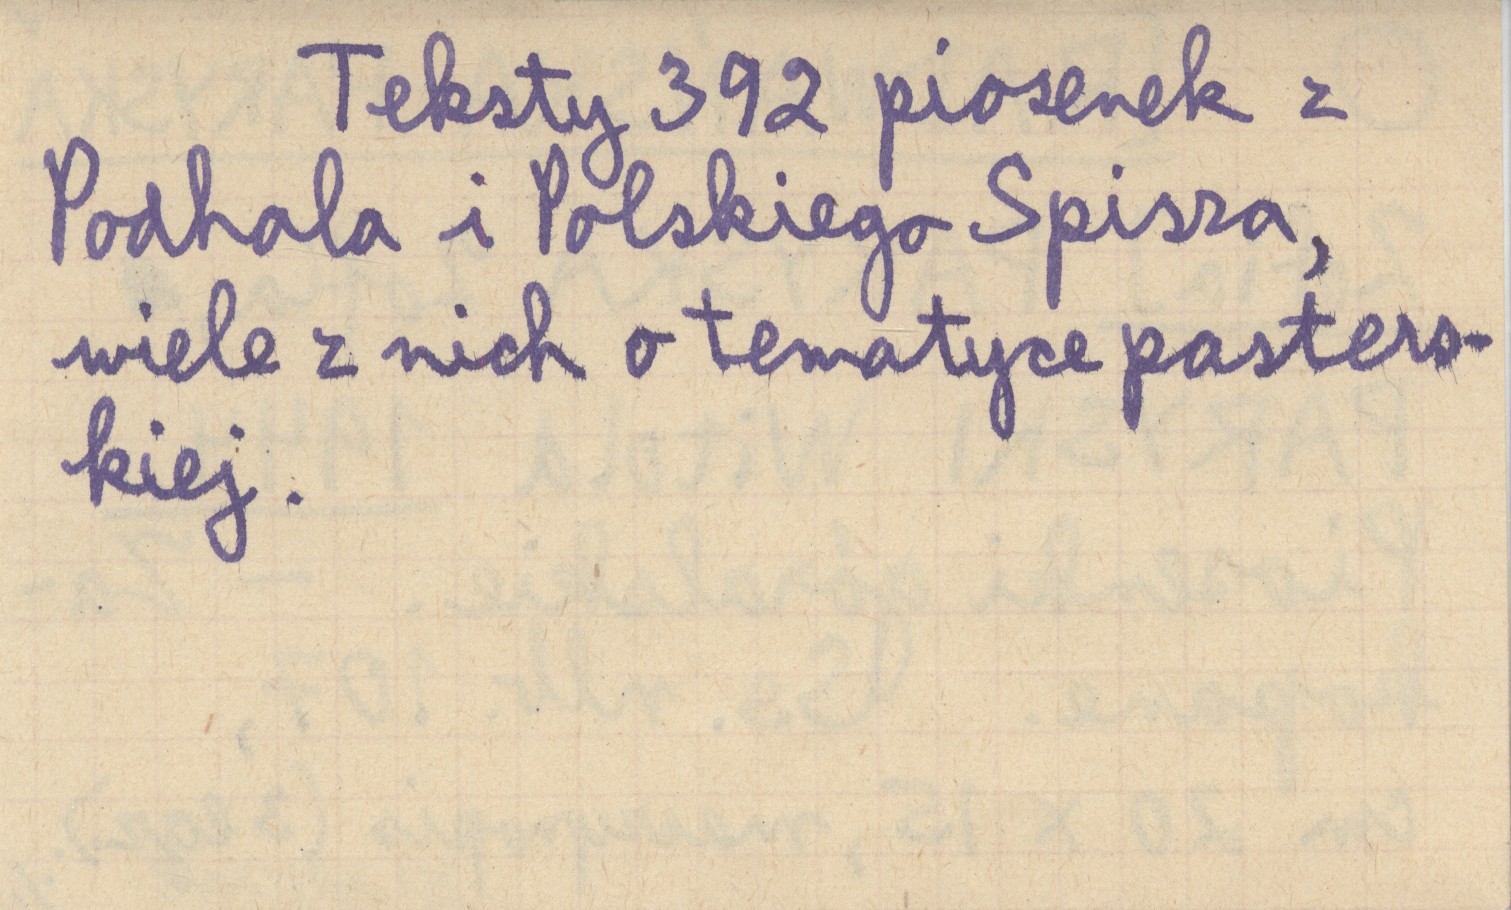 Teksty 392 piosenek z
Podhala i Polskiego Spisza,
wiele z nich o tematyce pasters-
kiej.